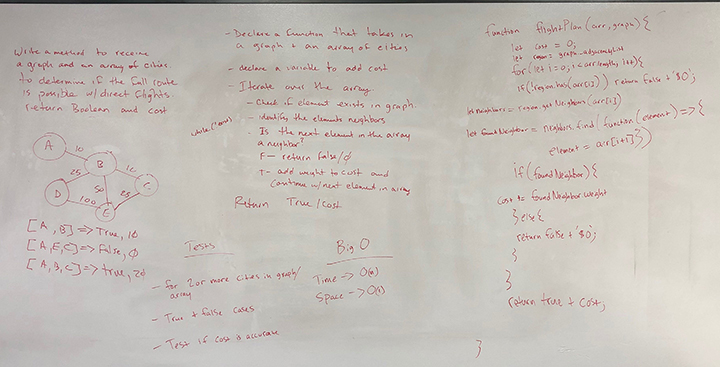 Write a method to receive
a graph and an array of cities
to determine if the full route
is possible w/direct flights.
return Boolean and cost
A
10
B
25
10
C
50
25
D
100
E
[A, B] => True, 10
[A, E, C] => False, 0
[A, B, C] => true, 20
- Declare a function that takes in
a graph + an array of cities
- declare a variable to add cost
- Iterate over the array
- Check if element exists in graph
- identify the elements neighbors
- Is the next element in the array
a neighbor?
F — return false/0
T - add weight to cost and
continue w/next element in array
Return True/cost
Tests
- For 2 or more cities in graph/
array
- True + false cases
- Test if cost is accurate
Big O
Time -> O(n)
Space -> O(1)
function flightPlan (arr, graph) {
let cost = 0;
let region = graph.adjacencyList
for (let i=0; i<arr.length; i++) {
if (!region.has(arr[i])) return False + '$0';
let neighbors = region.getNeighbors(arr[i])
let foundNeighbor = neighbors.find(function(element) => {
element = arr[i+1]})
if (foundNeighbor) {
cost += foundNeighbor.weight
} else {
return false + '$0';
}
}
return true + cost;
}